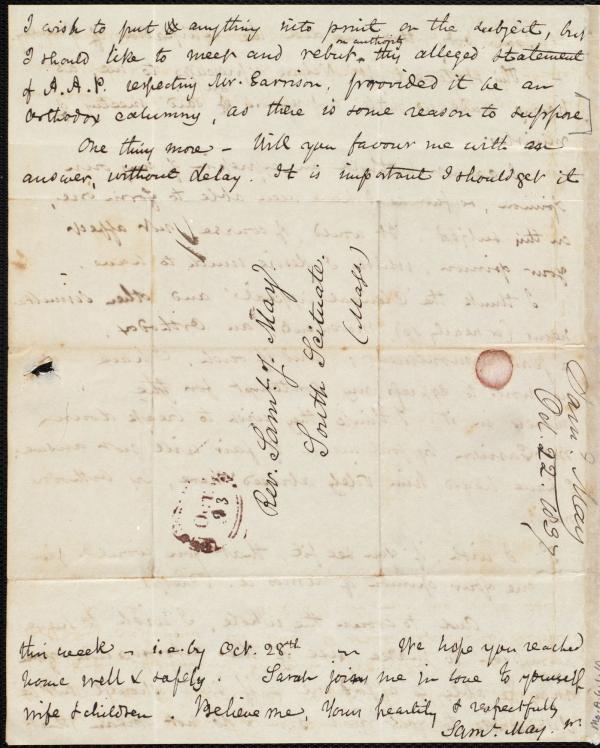 I wish to put anything into print on the subject, but
I should like to meet and rebut, on authority this alleged statement
of A. A. P. respecting Mr. Garrison, provided it be an
Orthodox calumny, as there is some reason to suppose.
One thing more – Will you favour me with an
answer, without delay. It is important I should get it
Rev. Saml. J. May.
South Scituate.
(Mass.)
OCT
23
Saml. May
Oct. 22. 1837
this week – i.e. by Oct. 28th – We hope you reached
home well & safely. Sarah joins me in love to yourself,
wife & children. Believe me, Yours heartily & respectfully
Saml. May. Jr.